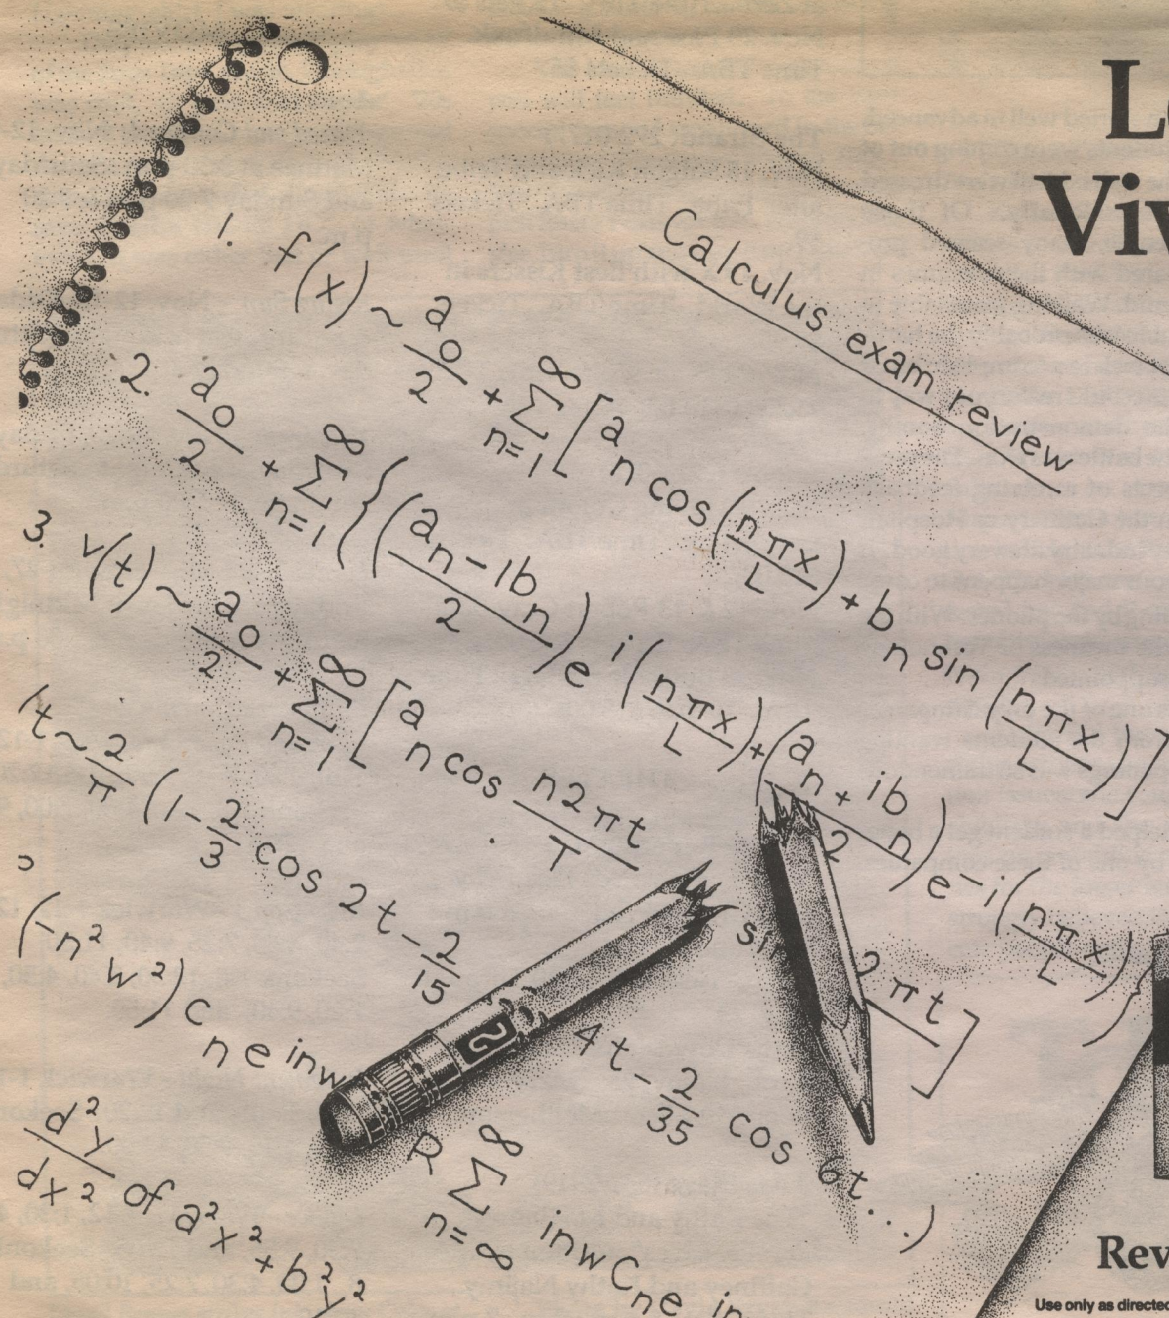 Calculus exam review
1. f(x) ~ a0/2 + ∑ n=1 ∞ [an cos (nπx/L) + bn sin (nπx/L)]
2. a0/2 + ∑ n=1 ∞ {(an - ibn/2) e i(nπx/L) + (an + ibn/2) e -i(nπx/L)}
3. v(t) ~ a0/2 + ∑ n=1 ∞ [an cos n2πt/T
2πt]
t ~ 2/π (1 - 2/3 cos 2t - 2/15
4t - 2/35 cos 6t...)
(-n² w²) Cn e inw
R ∑ n=∞ ∞ inw Cn e in
d²y/dx² of a²x² + b²y²
2
L
Viv
Rev
Use only as directed